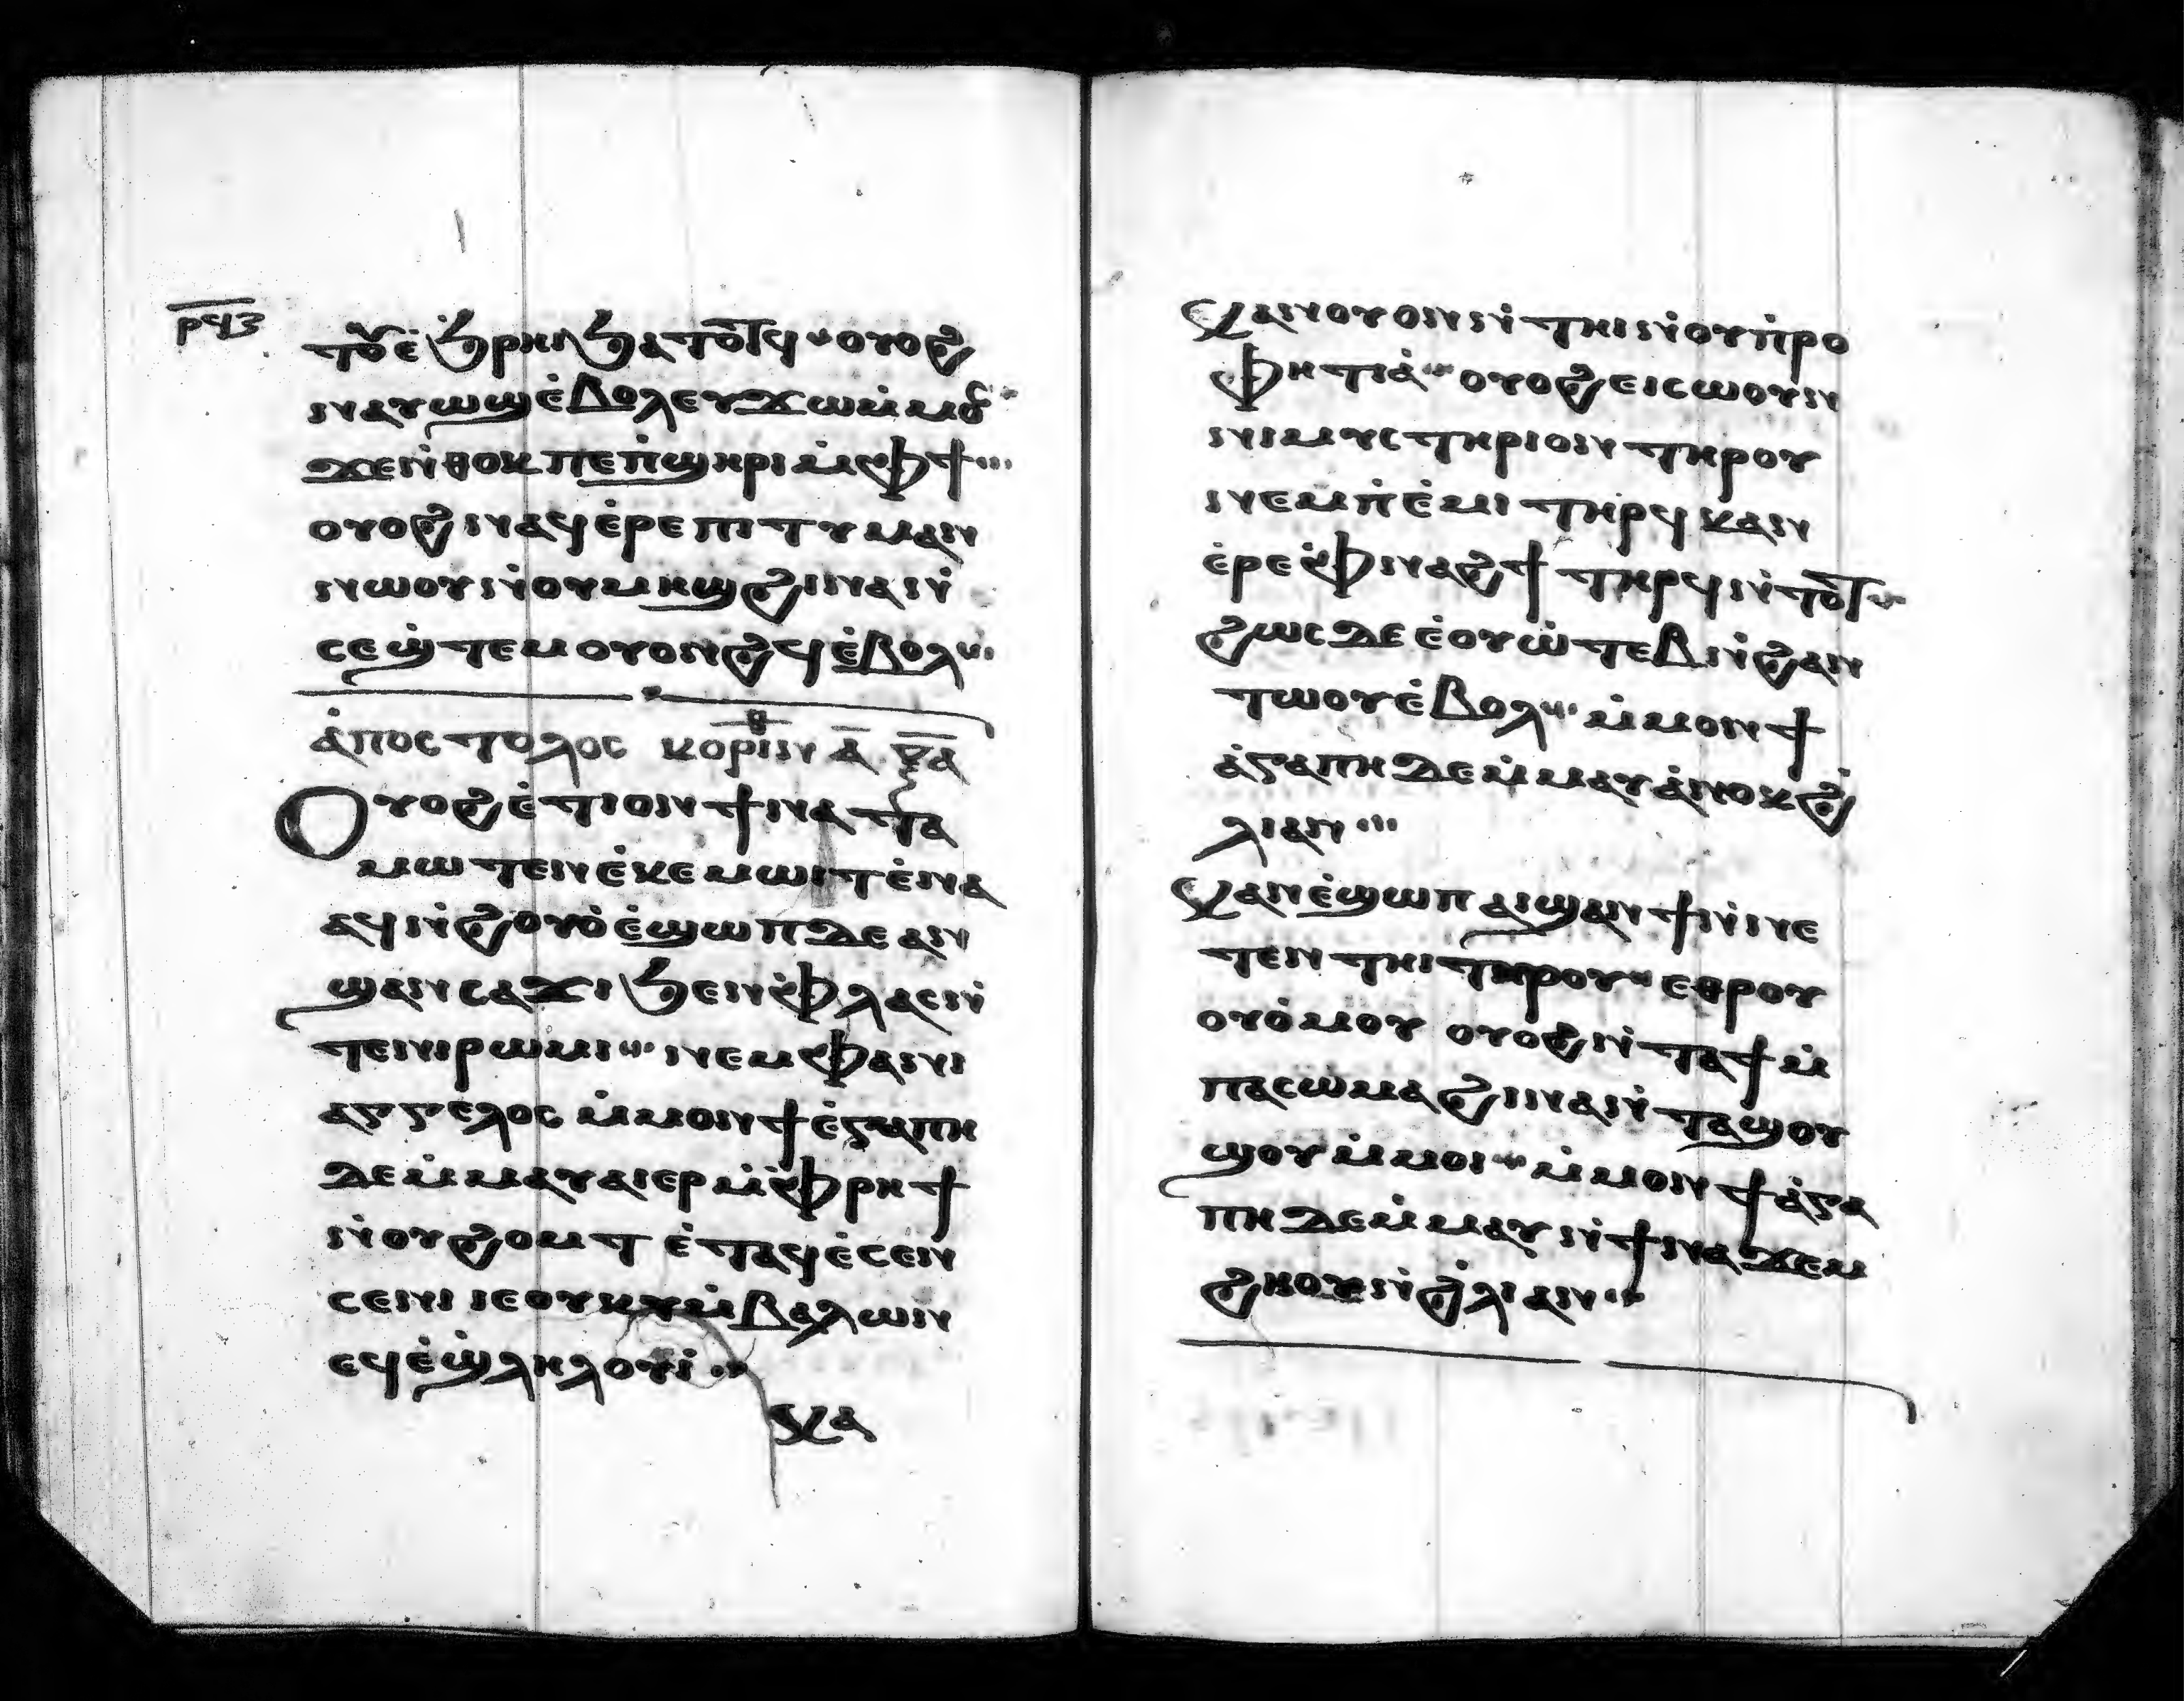 ⲣϥⲍ
ⲧⲟⲩⲉ̀ϧⲣⲏⲓϧⲁⲧⲟⲧϥ ⲟⲩⲟϩ
ⲛⲁⲩⲱϣⲉ̀ⲃⲟⲗⲉⲩϫⲱⲙ̀ⲙⲟⲥ
ϫⲉⲛ̀ⲑⲟⲕⲡⲉⲡ̀ϣⲏⲣⲓⲙ̀ⲫϯ
ⲟⲩⲟϩⲛⲁϥⲉ̀ⲣⲉⲡⲓⲧⲩⲙⲁⲛ
ⲛⲱⲟⲩⲛ̀ⲟⲩⲙⲏϣϩⲓⲛⲁⲛ̀
ⲥⲉϣ̀ⲧⲉⲙⲟⲩⲟⲛϩϥⲉ̀ⲃⲟⲗ
ⲁ̀ⲡⲟⲥⲧⲟⲗⲟⲥ ⲕⲟⲣⲓⲛ ⲁ̅
Ⲟⲩⲟϩⲉ̀ⲧⲓⲟⲛϯⲛⲁⲧⲁ
ⲙⲱⲧⲉⲛⲉ̀ⲕⲉⲙⲱⲓⲧⲉ̀ⲛⲁ
ⲁϥⲛ̀ϩⲟⲩⲟ̀ⲉ̀ϣⲱⲡⲇⲉⲁⲛ
ϣⲁⲛⲥⲁϫⲓϧⲉⲛⲫ̀ⲗⲁⲥⲛ̀
ⲧⲉⲛⲓⲣⲱⲙⲓ ⲛⲉⲙⲫⲁⲛⲓ
ⲁⲅⲅⲉⲗⲟⲥ ⲙ̀ⲙⲟⲛϯⲉ̀ⲅⲁⲡⲏ
ⲇⲉⲙ̀ⲙⲁⲩⲁⲓⲉⲣⲙ̀ⲫ̀ⲣⲏϯ
ⲛ̀ⲟⲩϩⲟⲙⲧ ⲉ̀ⲧⲁϥⲉ̀ⲥⲉⲛ
ⲥⲉⲛⲓ ⲓⲉⲟⲩⲕⲩⲙ̀ⲃⲁⲗⲱⲛ
ⲉϥⲉ̀ϣ̀ⲗⲏⲗⲟⲩⲓ̀
ⲕⲁ
Ⲕⲁⲛⲟⲩⲟⲛⲛ̀ⲧⲏⲓⲛ̀ⲟⲩⲡ̀ⲣⲟ
ⲫⲏⲧⲓⲁ̀ ⲟⲩⲟϩⲉⲓⲥⲱⲟⲩⲛ
ⲛⲓⲙⲩⲥⲧⲏⲣⲓⲟⲛ ⲧⲏⲣⲟⲩ
ⲛⲉⲙⲡ̀ⲉ̀ⲙⲓ ⲧⲏⲣϥ ⲕⲁⲛ
ⲉ̀ⲣⲉⲫ̀ⲛⲁϩϯ ⲧⲏⲣϥⲛ̀ⲧⲟⲧ
ϩⲱⲥⲇⲉ ⲉ̀ⲟⲩⲱ̀ⲧⲉⲃⲛ̀ϩⲁⲛ
ⲧⲱⲟⲩⲉ̀ⲃⲟⲗ ⲙ̀ⲙⲟⲛϯ
ⲁ̀ⲅⲁⲡⲏⲇⲉⲙ̀ⲙⲁⲩⲁ̀ⲛⲟⲕϩ̀
ⲗⲓⲁⲛ
Ⲕⲁⲛⲉ̀ϣⲱⲡ ⲁⲓϣⲁⲛϯⲛ̀ⲛⲉ
ⲧⲉⲛⲧⲏⲓⲧⲏⲣⲟⲩ ⲉⲑⲣⲟⲩ
ⲟⲩⲟ̀ⲙⲟⲩ ⲟⲩⲟϩⲛ̀ⲧⲁϯⲙ̀
ⲡⲁⲥⲱⲙⲁϩⲓⲛⲁⲛ̀ⲧⲁϣⲟⲩ
ϣⲟⲩⲙ̀ⲙⲟⲓ ⲙ̀ⲙⲟⲛϯⲁ̀ⲅⲁ
ⲡⲏⲇⲉⲙ̀ⲙⲁⲩⲛ̀ϯⲛⲁϫⲉⲙ
ϩⲏⲟⲩⲛ̀ϩ̀ⲗⲓⲁⲛ